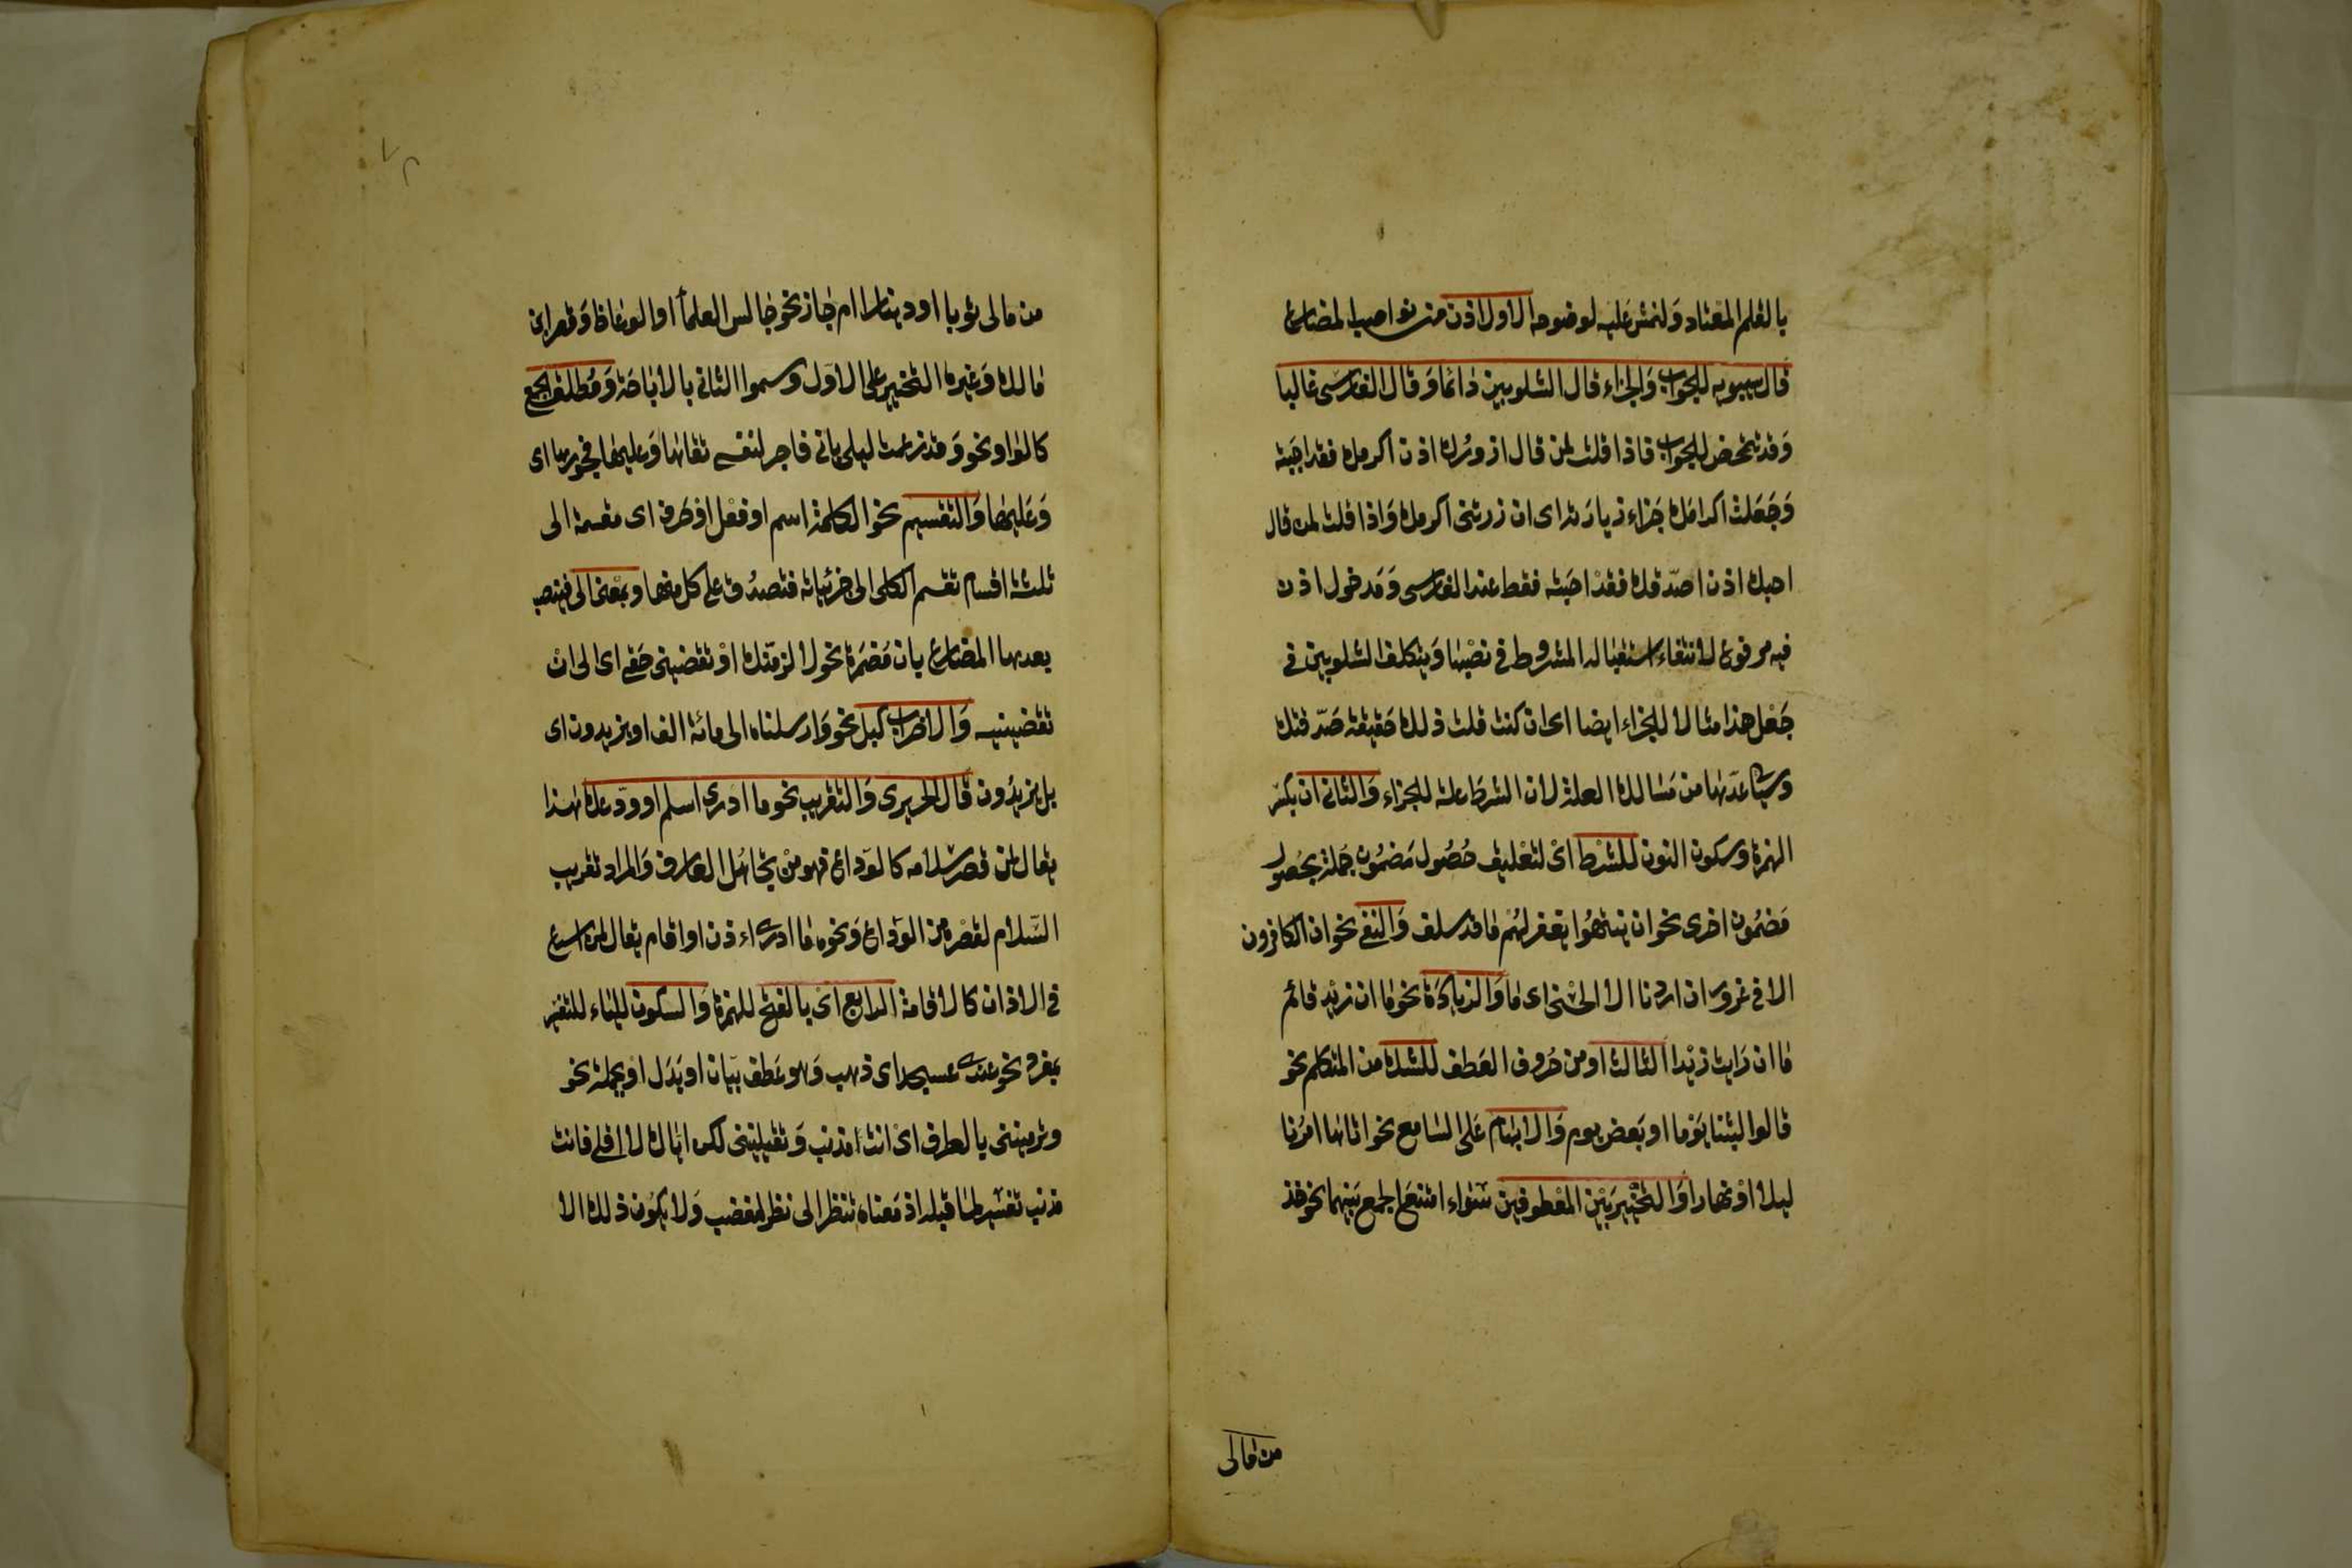 بالقلم المعتاد ولنمش عليه لوضوحه الاول اذن من نواصب المضارع
قال سيبويه للجواب والجزاء قال الشلوبين دائما وقال الفارسى غالبا
وقد تتمحض للجواب فاذا قلت لمن قال ازورك اذن اكرمك فقد اجبته
وجعلت اكرامك جزاء زيارته اى ان زرتنى اكرمك واذا قلت لمن قال
احبك اذن اصدقك فقد اجبته فقط عند الفارسى ومدخول اذن
فيه مرفوع لانتفاء استقباله المشروط فى نصبها ويتكلف الشلوبين فى
جعل هذا مثالا للجزاء ايضا اى ان كنت قلت ذلك حقيقة صدقتك
وسياتى عدها من مسالك العلة لان الشرط علة للجزاء والثانى ان بكسر
الهمزة وسكون النون للشرط اى لتعليق حصول مضمون جملة بحصول
مضمون اخرى نحو ان ينتهوا يغفر لهم ما قد سلف والنفى نحو ان الكافرون
الا فى غرور ان اردنا الا الحسنى اى ما والزيادة نحو ما ان زيد قائم
ما ان رايت زيدا الثالث او من حروف العطف للشك من المتكلم نحو
قالوا لبثنا يوما او بعض يوم والابهام على السامع نحو اتاها امرنا
ليلا او نهارا والتخيير بين المعطوفين سواء امتنع الجمع بينهما نحو خذ
من مالى
من مالى ثوبا او دينارا ام جاز نحو جالس العلماء او الوعاظ وقصر ابن
مالك وغيره التخيير على الاول وسموا الثانى بالاباحة ومطلق الجمع
كالواو نحو وقد زعمت ليلى بانى فاجر لنفسى تقاها وعليها فجورها اى
وعليها والتقسيم نحو الكلمة اسم او فعل او حرف اى مقسمة الى
ثلثة اقسام تقسم الكلى الى جزئياته فتصدق على كل منها وبمعنى الى فينتصب
بعدها المضارع بان مضمرة نحو لالزمنك او تقضينى حقى اى الى ان
تقضينيه والاضراب كبل نحو وارسلناه الى مائة الف او يزيدون اى
بل يزيدون قال الحريرى والتقريب نحو ما ادرى اسلم او ودع هذا
يقال لمن قصر سلامه كالوداع فهو من تجاهل العارف والمراد تقريب
السلام لقصره من الوداع ونحوه ما ادرى ءاذن او اقام يقال لمن اسرع
فى الاذان كالاقامة الرابع اى بالفتح للهمزة والسكون للياء للتفسير
بمفرد نحو عندى عسجد اى ذهب وهو عطف بيان او بدل او بجملة نحو
وترمينى بالطرف اى انت مذنب وتقلينى لكن اياك لا اقلى فانت
مذنب تفسير لما قبله اذ معناه تنظر الى نظر مغضب ولا يكون ذلك الا